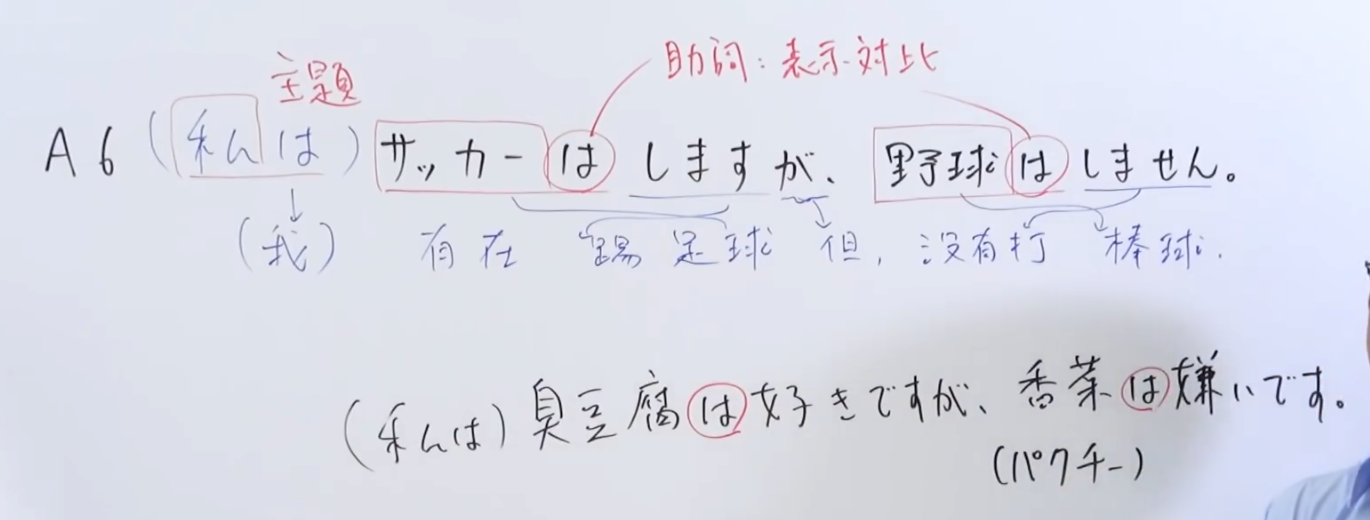 主題
助词：表示対比
A6（私は）サッカーはしますが、野球はしません。
（我）有在踢足球但，没有打棒球．
（私は）臭豆腐は好きですが、香菜は嫌いです。
（パクチー）